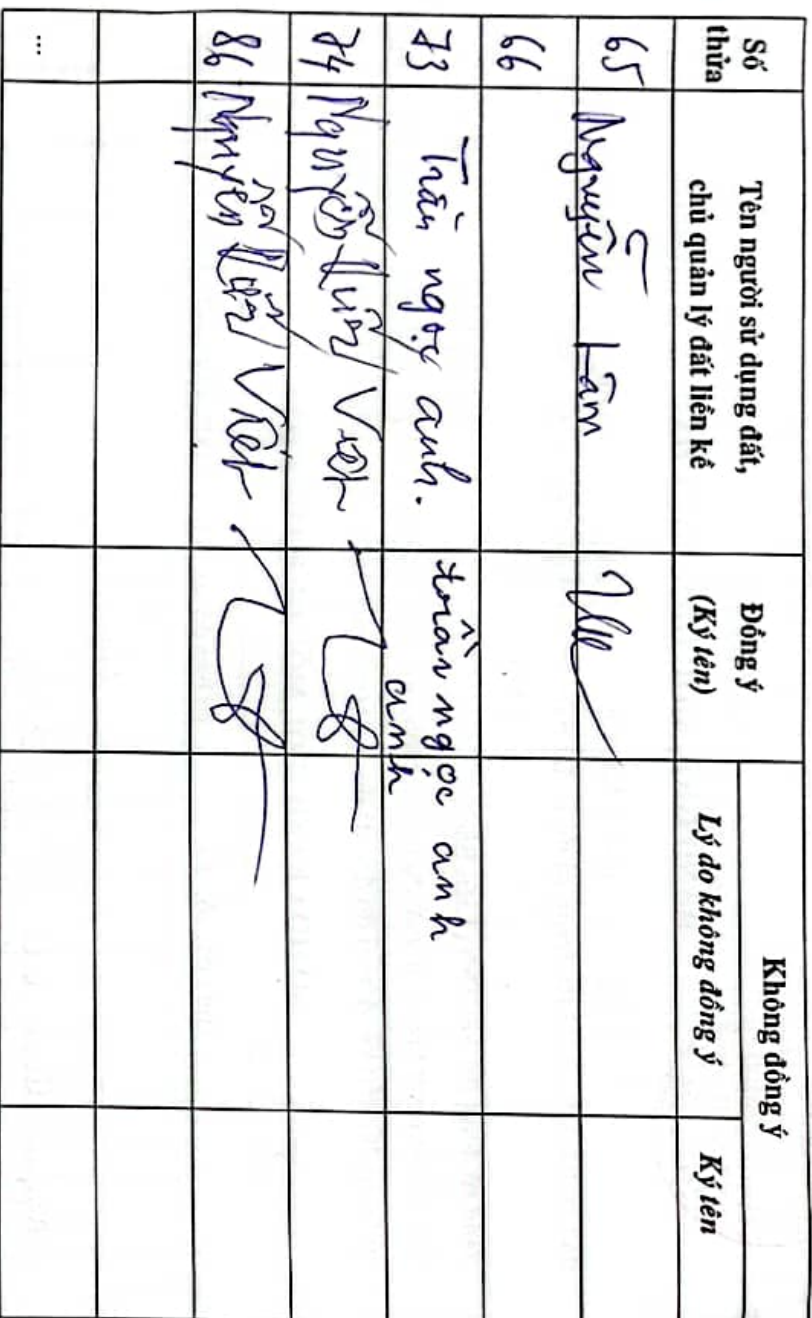 Số thửa
Tên người sử dụng đất, chủ quản lý đất liền kề
Đồng ý (Ký tên)
Không đồng ý
Lý do không đồng ý
Ký tên
65 Nguyễn Lâm
66
73 Trần ngọc anh. trần ngọc anh
anh
74 Nguyễn Hữu Việt
86 Nguyễn Hữu Việt
...